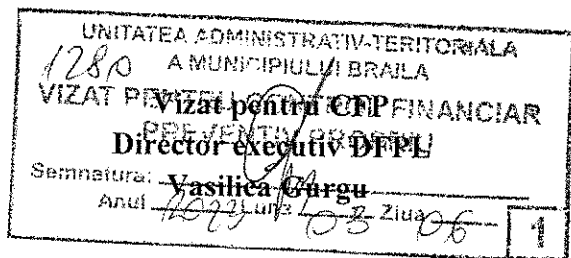 UNITATEA ADMINISTRATIV-TERITORIALA
1280 A MUNICIPIULUI BRAILA
VIZAT PENTRU CONTROL FINANCIAR
Vizat pentru CFP
PREVENTIV PROPRIU
Director executiv DFPL
Semnatura:
Vasilica Gurgu
Anul 2023 Luna 03 Ziua 06
1